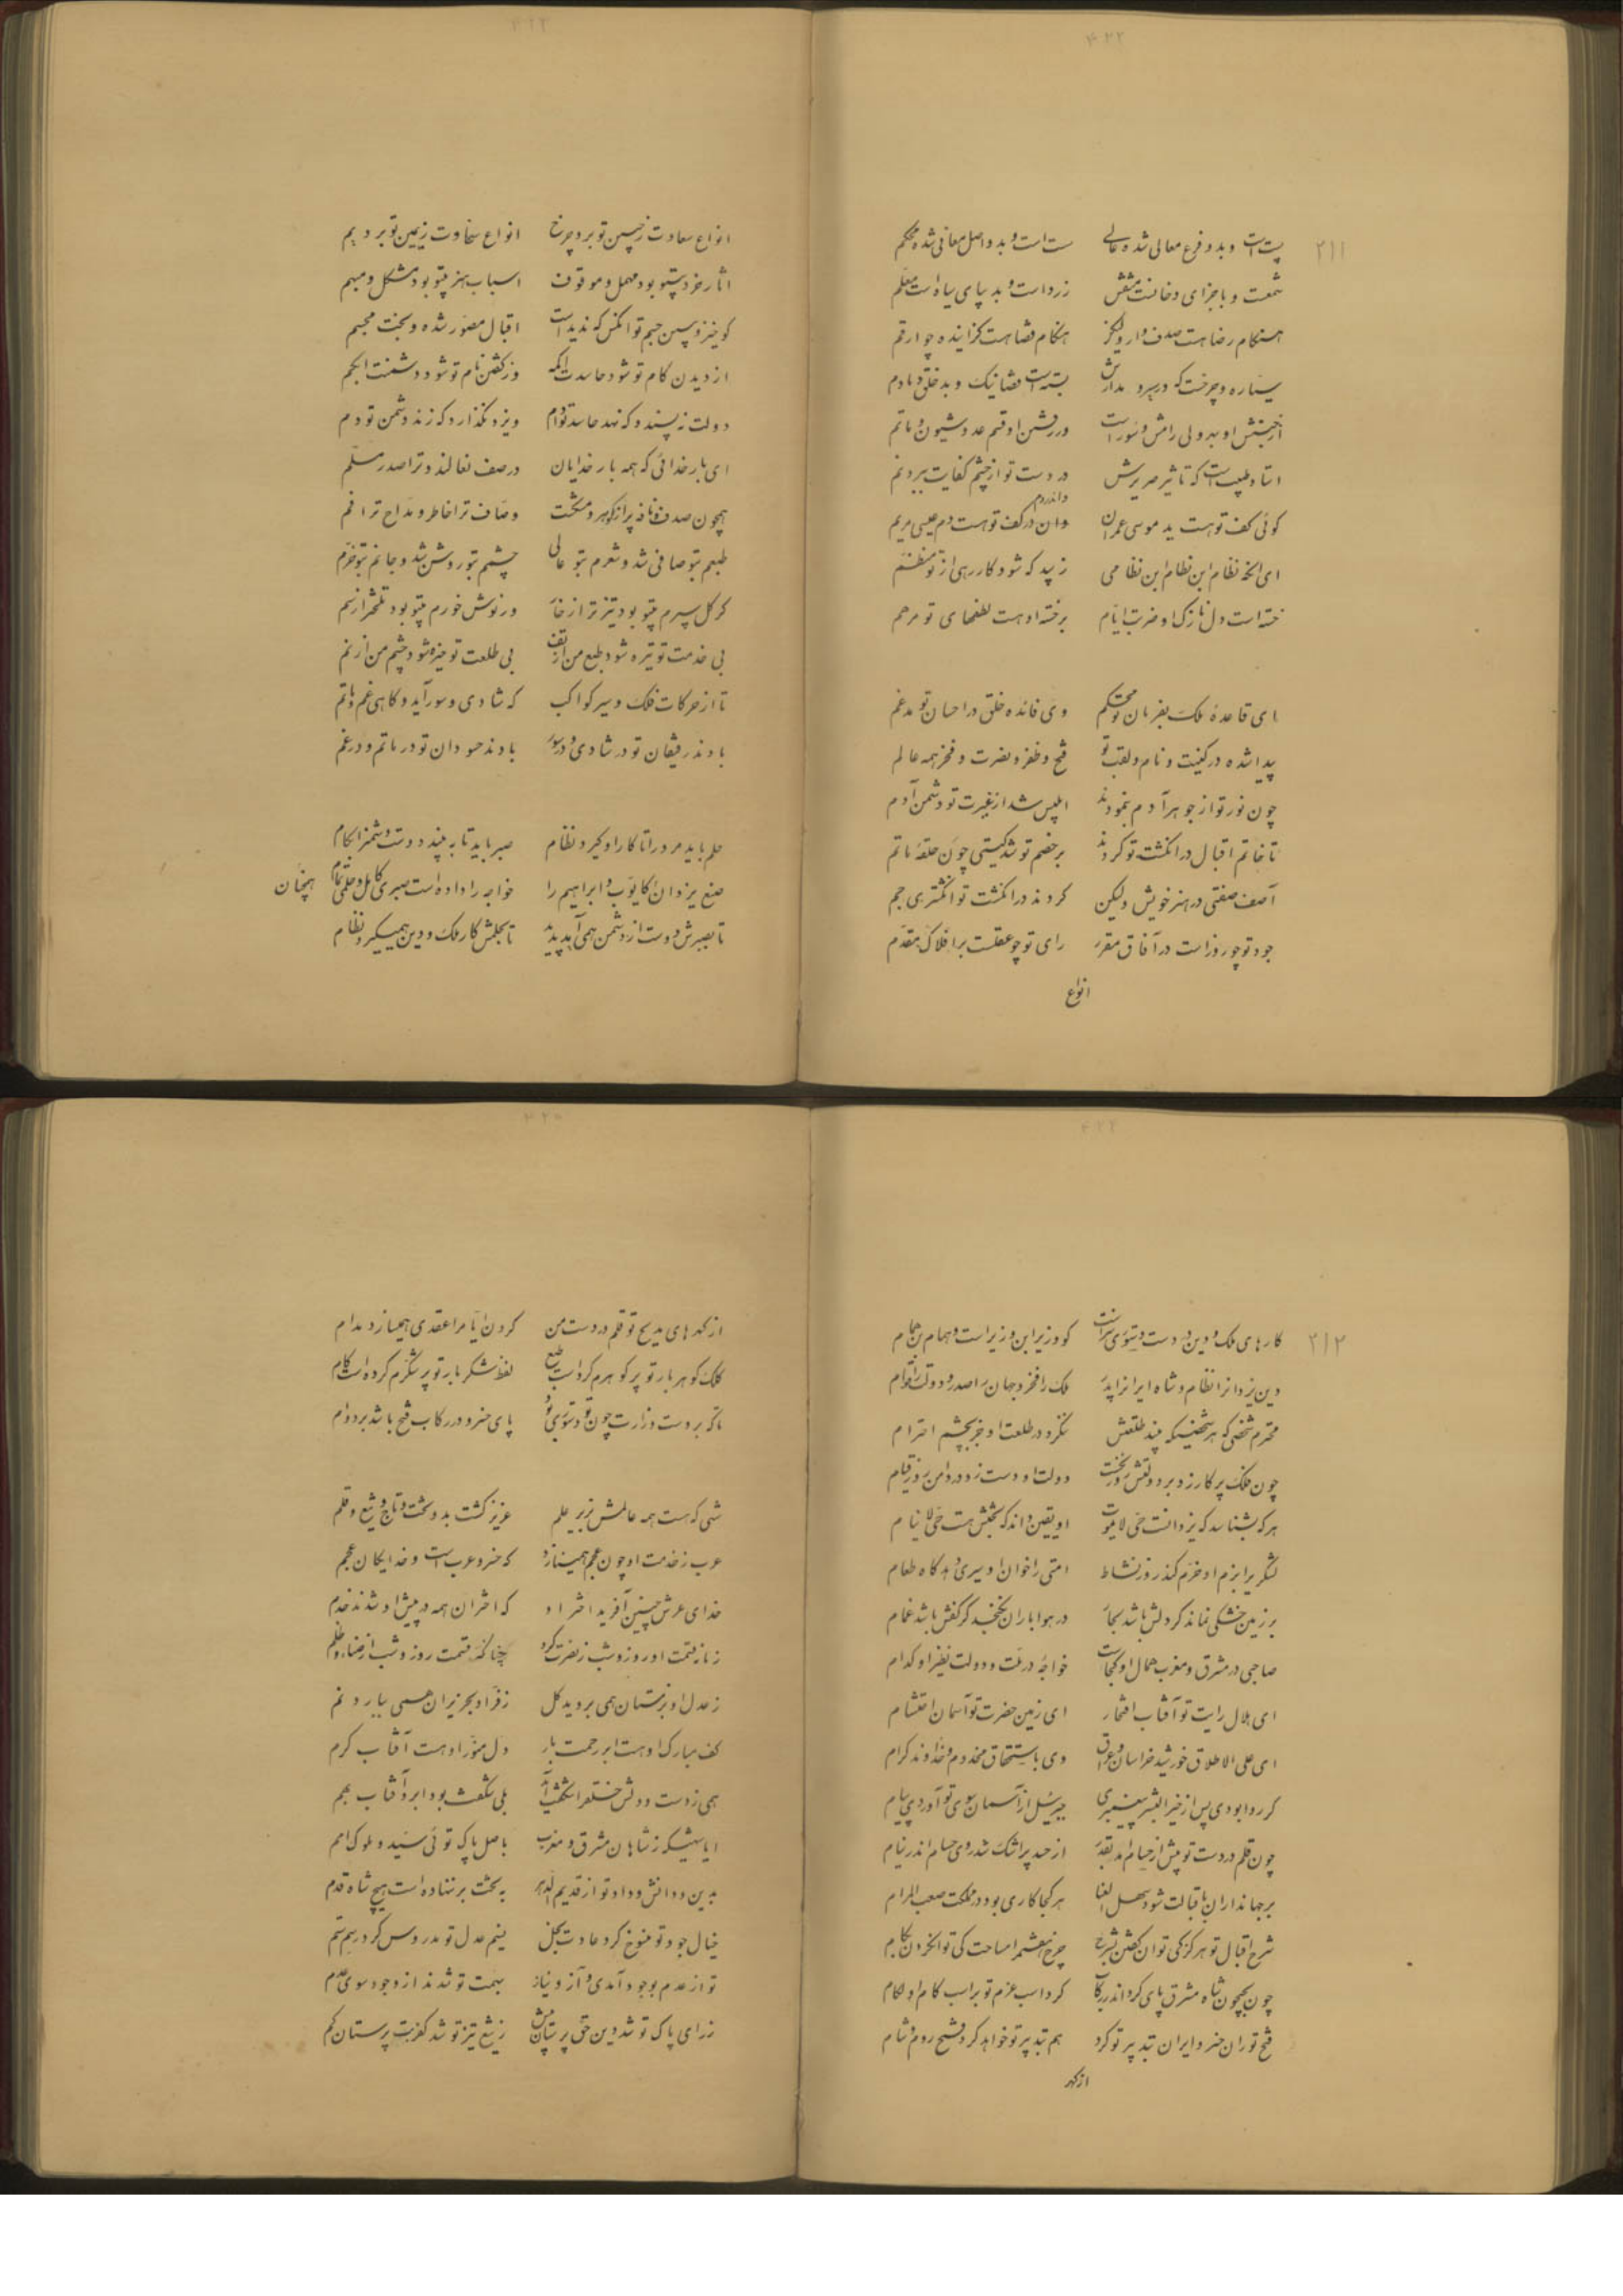 ۲۱۱
پست است و بدو فرع معالی شده عالی    سست است و بدو اصل معانی شده محکم
شمعست و باجزای دخانست منقش    زرد است و بد بپای سیاه است معلم
هنگام رضا هست صدف وار ولیکن    هنگام قضا هست گزاینده چو ارقم
سیاره و چرخست که در سیر و مدارش    بسته است قضا نیک و بد خلق دمادم
از جنبش او بهر ولی رامش و سور است    در رفتن او قسم عدو شیون و ماتم
استاد طبیب است که تاثیر صریرش    در دست تو از چشم کفایت ببرد نم
گوئی کف تو هست ید موسی عمران    وان در کف تو هست دم عیسی مریم
ای الحق نظام ابن نظام ابن نظامی    زیبد که شود کار رهی از تو منظم
خسته است دل نازک او ضربت ایام    بر خسته او هست لطفهای تو مرهم
ای قاعدهٔ ملک بفرمان تو محکم    وی فائده خلق در احسان تو مدغم
پیدا شده در کنیت و نام و لقب تو    فتح و ظفر و نصرت و فخر همه عالم
چون نور تو از جوهر آدم بنمودند    ابلیس شد از غیرت تو دشمن آدم
تا خاتم اقبال در انگشت تو کردند    بر خصم تو شد گیتی چون حلقه ماتم
آصف صفتی در هنر خویش ولیکن    کردند در انگشت تو انگشتری جم
جود تو چو روز است در آفاق مقرر    رای تو چو عقلست بر افلاک مقدم
انواع
انواع سعادت ز جبین تو برد چرخ    انواع سخاوت ز یمین تو برد یم
آثار خرد بیتو بود مهمل و موقوف    اسباب هنر بیتو بود مشکل و مبهم
کو خیز و ببین جسم تو آنکس که ندیداست    اقبال مصور شده و بخت مجسم
از دیدن کام تو شود حاسدت اکمه    وز گفتن نام تو شود دشمنت ابکم
دولت نپسندد که نهد حاسد تو دام    و ایزد نگذارد که زند دشمن تو دم
ای بار خدائی که همه بار خدایان    در صف نعالند و ترا صدر مسلم
همچون صدف و نافه پر از گوهر و مشکست    وصاف ترا خاطر و مداح ترا فم
طبعم بتو صافی شد و شعرم بتو عالی    چشمم بتو روشن شد و جانم بتو خرم
گر گل سپرم بیتو بود تیزتر از خار    ور نوش خورم بیتو بود تلختر از سم
بی خدمت تو تیره شود طبع من از تف    بی طلعت تو خیره شود چشم من از نم
تا از حرکات فلک و سیر کواکب    که شادی و سور آید و گاهی غم و ماتم
بادند رفیقان تو در شادی و در سور    بادند حسودان تو در ماتم و در غم
حلم باید مرد را تا کار او گیرد نظام    صبر باید تا ببیند دوست دشمن را بکام
صنع یزدان کایوب و ابراهیم را    خواجه را داده است صبری کامل و حلمی تمام
تا بصبرش دوست از دشمن همی آید پدید    تا بحلمش کار ملک و دین همیگیرد نظام
همچنان
۲۱۲
کارهای ملک و دین در دست دستوری سزاست    کو وزیر ابن وزیر است و همام بن همام
دین یزدان را نظام و شاه ایران را پدر    ملک را فخر و جهان را صدر و دولت را قوام
محترم شخصی که هر شخصی که بیند طلعتش    ننگرد در طلعت او جز بچشم احترام
چون فلک پرگار زد بر دولتش روز نخست    دولت او دست زد در دامن روز قیام
هر که بشناسد که یزدانست حی لا یموت    او یقین داند که بختش هست حی لا ینام
لشکری را بزم او خرم کند روز نشاط    امتی را خوان او سیری دهد گاه طعام
بر زمین خشکی نماند گر دلش باشد بحار    در هوا باران نخیزد گر کفش باشد غمام
صاحبی در مشرق و مغرب همال او کجاست    خواجهٔ در ملت و دولت نظیر او کدام
ای هلال رایت تو آفتاب افتخار    ای زمین حضرت تو آسمان احتشام
ای علی الاطلاق خورشید خراسان و عراق    وی باستحقاق مخدوم و خداوند کرام
گر روا بودی پس از خیر البشر پیغمبری    جبرئیل از آسمان سوی تو آوردی پیام
چون قلم در دست تو پیش از حسام آمد بقدر    از حسد پر اشک شد روی حسام اندر نیام
بر جهانداران باقبالت شود سهل العنا    هر کجا کاری بود در مملکت صعب المرام
شرح اقبال تو هرگز کی توان گفتن بشرح    چرخ هفتم را مساحت کی توان کردن بگام
چون بجیحون شاه مشرق پای کرد اندر رکاب    کرد اسب عزم تو بر اسب کام او لگام
فتح توران خسرو ایران بتدبیر تو کرد    هم بتدبیر تو خواهد کرد فتح روم و شام
از گهر
از گهرهای مدیح تو قلم در دست من    گردن ایام را عقدی همیسازد مدام
کلک گوهر بار تو پر گوهرم کرد است طبع    لفظ شکر بار تو پر شکرم کرده است کام
تا که بر دست وزارت چون تو دستوری بود    پای خسرو در رکاب فتح باشد بر دوام
شهی که هست همه عالمش بزیر علم    عزیز گشت بدو تخت و تاج و تیغ و قلم
عرب ز خدمت او چون عجم همینازد    که خسرو عرب است و خدایگان عجم
خدای عرش چنین آفرید اختر او    که اختران همه در پیش او شدند خدم
زمانه قسمت او روز و شب ز نصرت کرد    چنانکه قسمت روز و شب از ضیاء و ظلم
ز عدل او بزمستان همی بروید گل    ز فر او بحزیران همی ببارد نم
کف مبارک او هست ابر رحمت بار    دل منور او هست آفتاب کرم
همی ز دست و دلش خلق را شگفت آید    بلی شگفت بود ابر و آفتاب بهم
ایا ستیکه ز شاهان مشرق و مغرب    باصل پاک توئی سید ملوک امم
بدین و دانش و داد تو از قدیم الدهر    به تخت بر ننهاده است هیچ شاه قدم
خیال جود تو منسوخ کرد عادت بخل    نسیم عدل تو مدروس کرد رسم ستم
تو از عدم بوجود آمدی و آز و نیاز    بهمت تو شدند از وجود سوی عدم
ز رای پاک تو شد دین حق پرستان بیش    ز تیغ تیز تو شد کفر بت پرستان کم